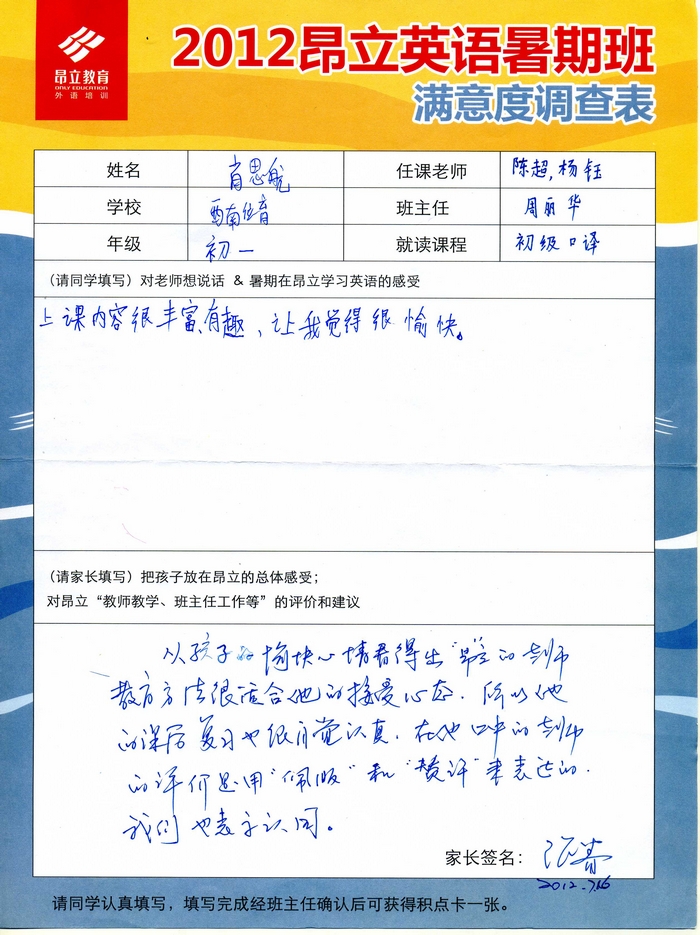 昂立教育
ONLY EDUCATION
外语培训
2012昂立英语暑期班
满意度调查表
姓名 肖思航 任课老师 陈超,杨钰
学校 西南位育 班主任 周丽华
年级 初一 就读课程 初级口译
(请同学填写)对老师想说话 & 暑期在昂立学习英语的感受
上课内容很丰富、有趣、让我觉得很愉快。
(请家长填写)把孩子放在昂立的总体感受;
对昂立“教师教学、班主任工作等”的评价和建议
从孩子的愉快心情看得出“昂立”的老师
教育方法很适合他的接受心态. 所以他
的课后复习也很自觉认真. 在他口中的老师
的评价是用“佩服”和“赞许”来表达的.
我们也表示认同。
家长签名:
2012.7.16
请同学认真填写,填写完成经班主任确认后可获得积点卡一张。